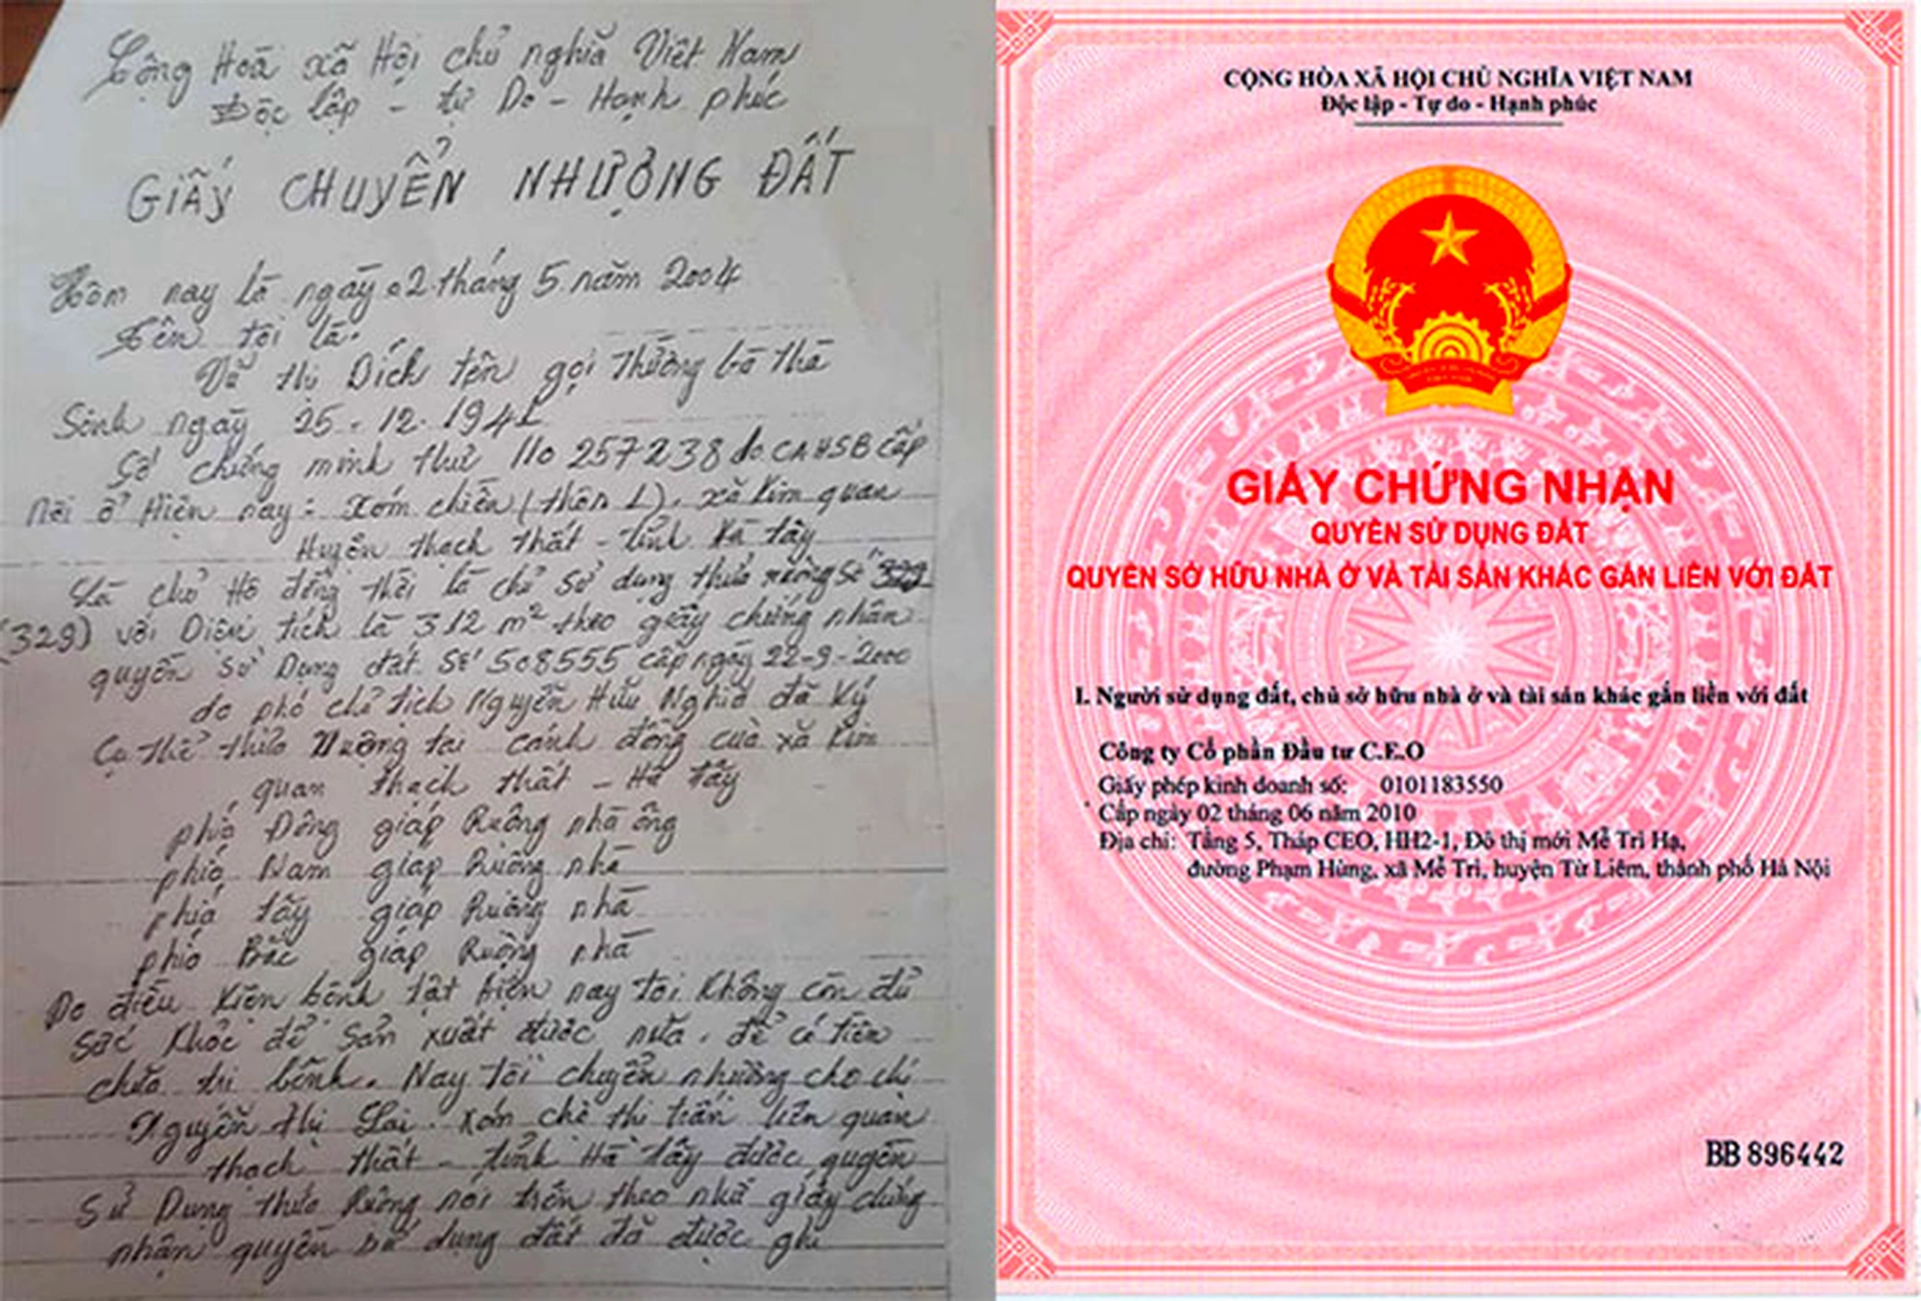 Cộng Hoà xã Hội chủ nghĩa Việt Nam
Độc lập - tự Do - Hạnh phúc
GIẤY CHUYỂN NHƯỢNG ĐẤT
Hôm nay là ngày 02 tháng 5 năm 2004
Tên tôi là:
Thị Dích tên gọi thường bà
Sinh ngày 25.12.194
Số chứng minh thư 110 257238 do CAHSB cấp
Nơi ở Hiện nay: Xóm chiền (thôn 1). xã Kim quan
Huyện thạch thất - tỉnh Hà tây
Là chủ Hộ đồng thời là chủ sử dụng thửa ruộng số 329
(329) với Diện tích là 312 m² theo giấy chứng nhận
quyền sử Dụng đất. Số 508555 cấp ngày 22-9-2000
do phó chủ tịch Nguyễn Hữu Nghĩa đã Ký
Cụ thể thửa Ruộng tại cánh đồng của xã Kim
quan thạch thất - Hà tây
phía Đông giáp Ruộng nhà ông
phía Nam giáp Ruộng nhà
phía tây giáp Ruộng nhà
phía Bắc giáp Ruộng nhà
Do điều Kiện bệnh tật hiện nay tôi Không còn đủ
sức Khỏe để sản xuất được nữa. để có tiền
chữa trị bệnh. Nay tôi chuyển nhượng cho chị
Nguyễn thị Lai. xóm chè thị trấn liên quan
thạch thất - tỉnh Hà tây được quyền
Sử Dụng thửa Ruộng nói trên theo như giấy chứng
nhận quyền sử dụng đất đã được ghi
CỘNG HÒA XÃ HỘI CHỦ NGHĨA VIỆT NAM
Độc lập - Tự do - Hạnh phúc
GIẤY CHỨNG NHẬN
QUYỀN SỬ DỤNG ĐẤT
QUYỀN SỞ HỮU NHÀ Ở VÀ TÀI SẢN KHÁC GẮN LIỀN VỚI ĐẤT
I. Người sử dụng đất, chủ sở hữu nhà ở và tài sản khác gắn liền với đất
Công ty Cổ phần Đầu tư C.E.O
Giấy phép kinh doanh số: 0101183550
Cấp ngày 02 tháng 06 năm 2010
Địa chỉ: Tầng 5, Tháp CEO, HH2-1, Đô thị mới Mễ Trì Hạ,
đường Phạm Hùng, xã Mễ Trì, huyện Từ Liêm, thành phố Hà Nội
BB 896442